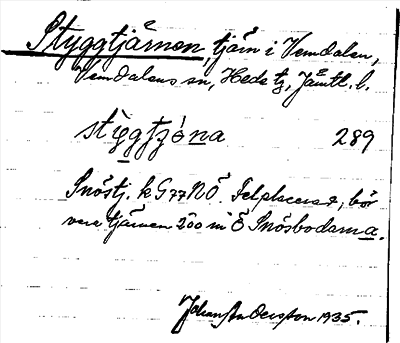 Styggtjärnen, tjärn i Vemdalen,
Vemdalens sn, Hede tg, Jämtl. l.
stygtjóna 289
Snöstj. k G77NÖ. Felplacerat, bör
vara tjärnen 200 m Ö Snösbodarna.
Johan Andersson 1935.